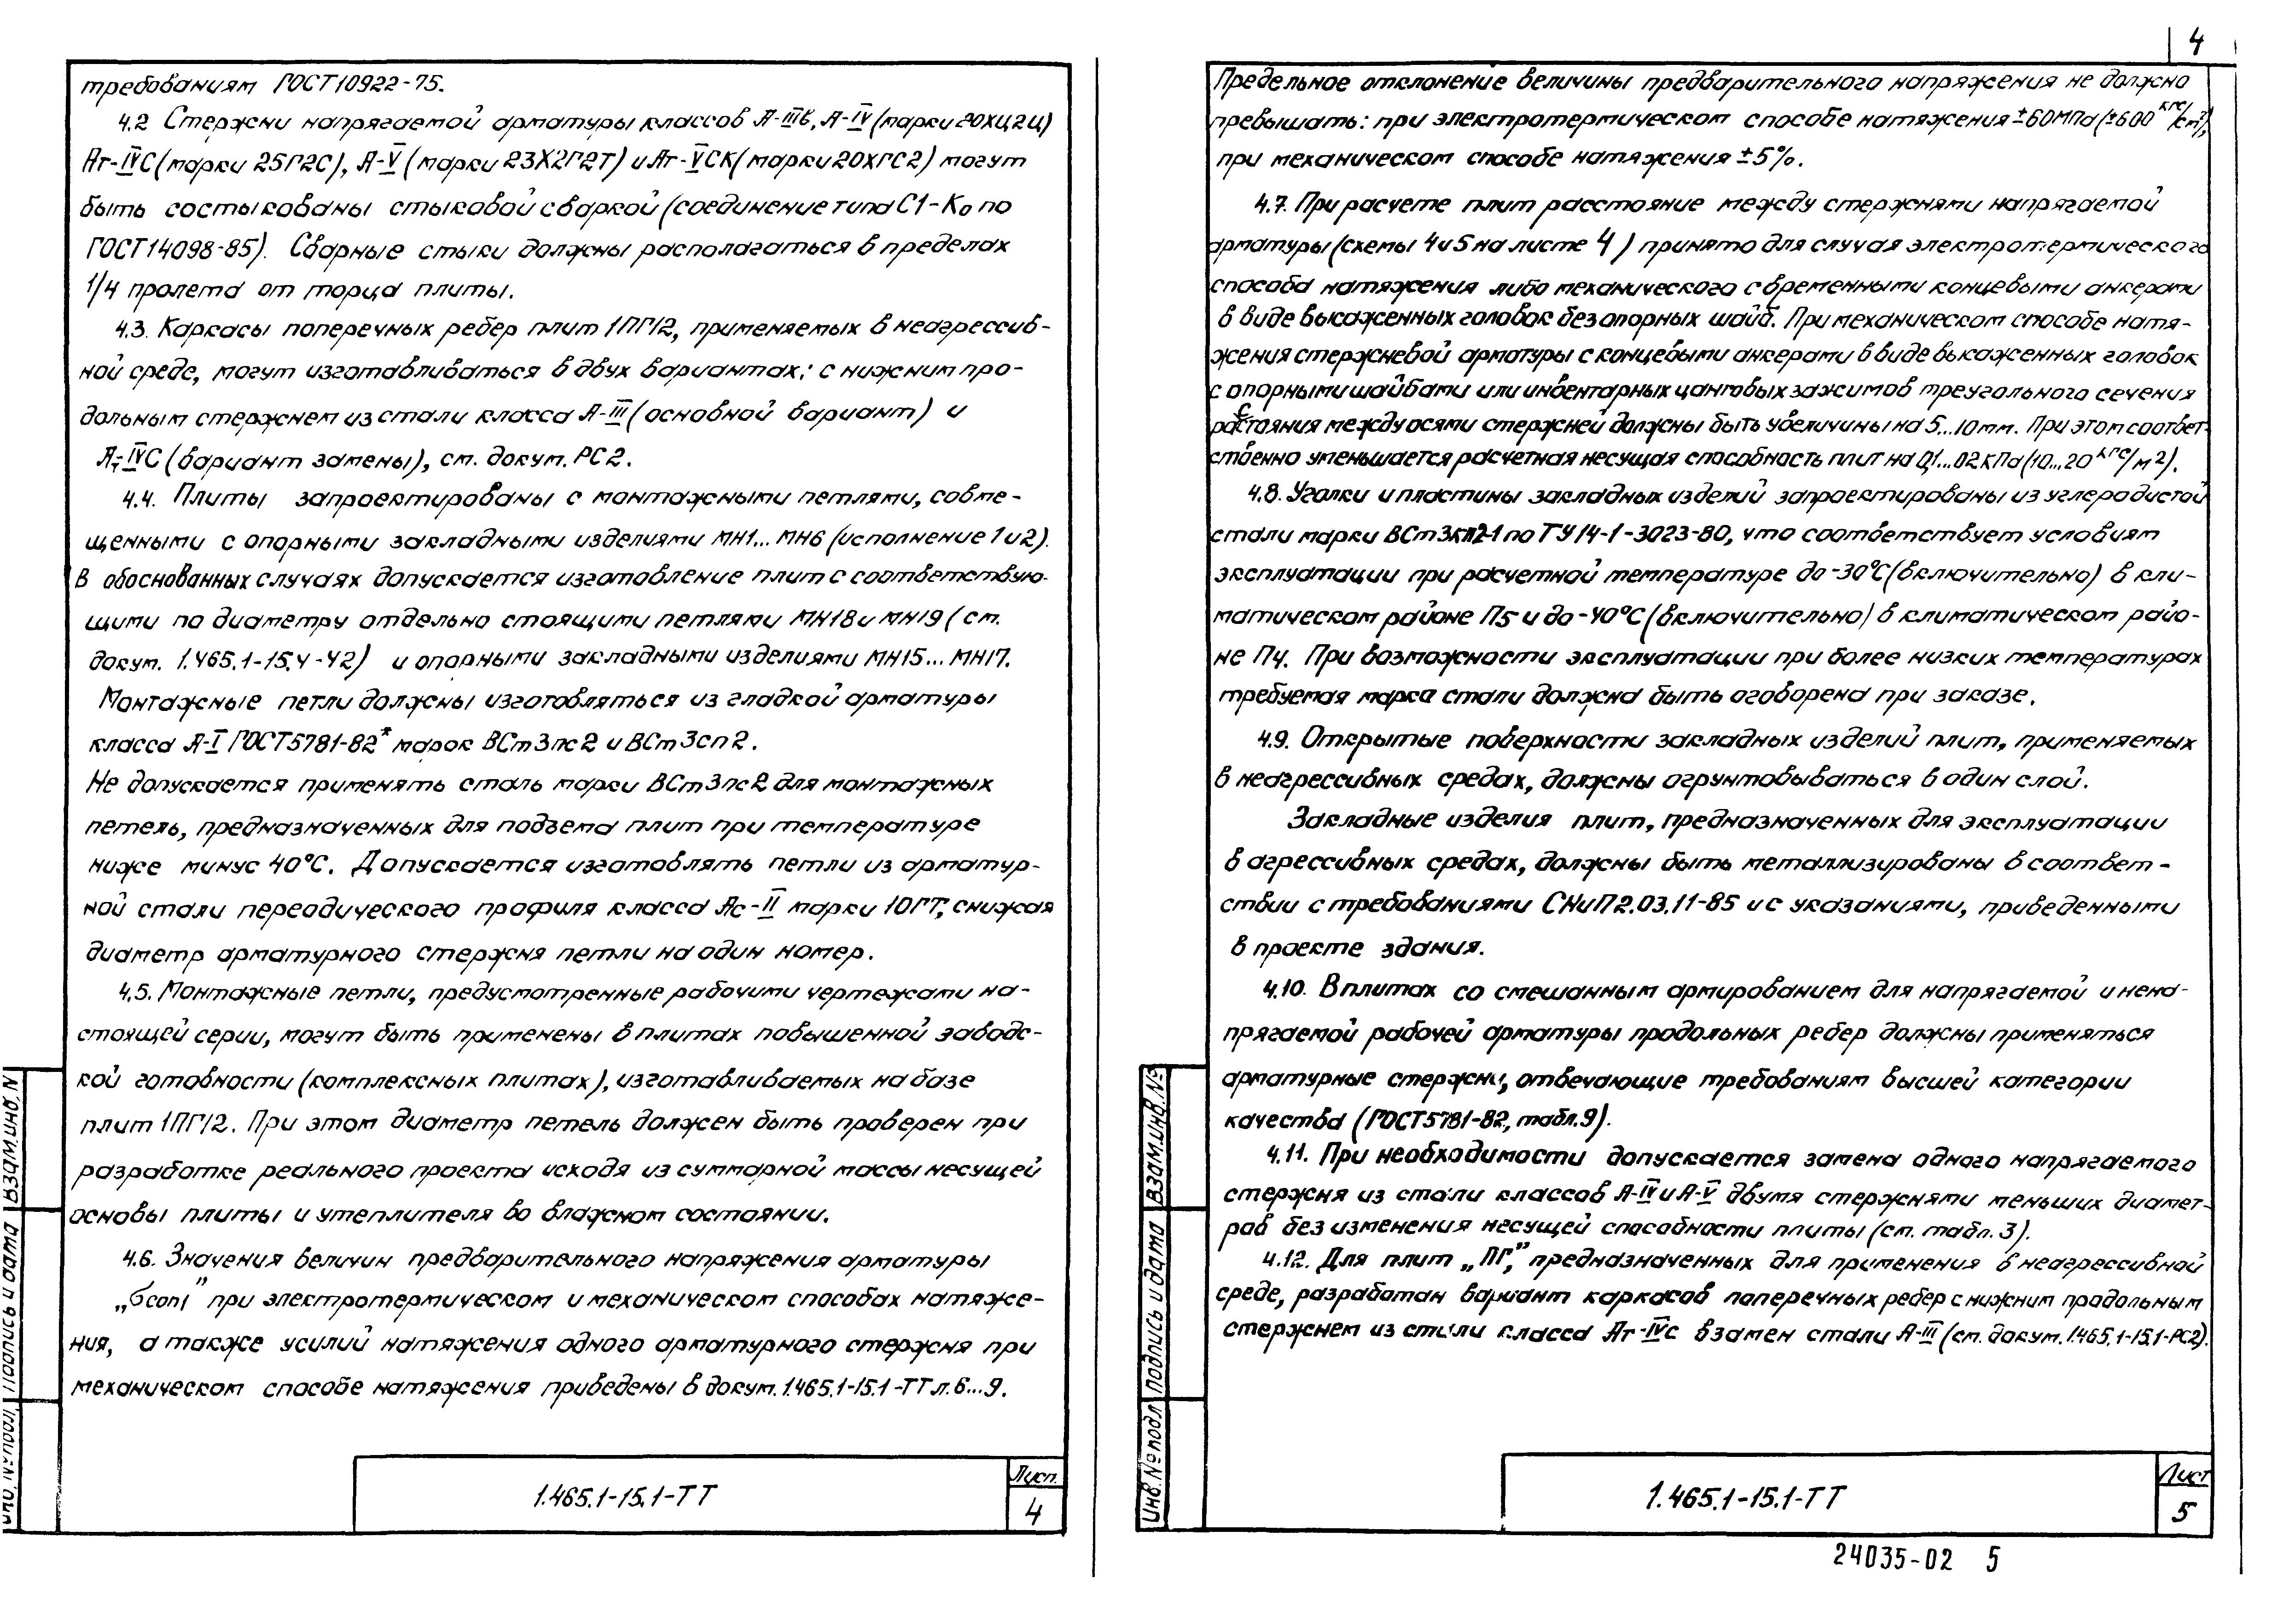 требованиям ГОСТ 10922-75.
4.2 Стержни напрягаемой арматуры классов А-IIIв, А-IV (марки 20ХЦ2Ц)
Ат-IVС (марки 25Г2С), А-V (марки 23Х2Г2Т) и Ат-VСК (марки 20ХГС2) могут
быть состыкованы стыковой сваркой (соединение типа С1-Ко по
ГОСТ 14098-85). Сварные стыки должны располагаться в пределах
1/4 пролета от торца плиты.
4.3. Каркасы поперечных ребер плит 1ПГ12, применяемых в неагрессив-
ной среде, могут изготавливаться в двух вариантах: с нижним про-
дольным стержнем из стали класса А-III (основной вариант) и
Ат-IVС (вариант замены), см. докум. РС2.
4.4. Плиты запроектированы с монтажными петлями, совме-
щенными с опорными закладными изделиями МН1... МН6 (исполнение 1 и 2).
В обоснованных случаях допускается изготовление плит с соответствую-
щими по диаметру отдельно стоящими петлями МН18 и МН19 (см.
докум. 1.465.1-15.4-42) и опорными закладными изделиями МН15... МН17.
Монтажные петли должны изготовляться из гладкой арматуры
класса А-I ГОСТ 5781-82* марок ВСт3пс2 и ВСт3сп2.
Не допускается применять сталь марки ВСт3пс2 для монтажных
петель, предназначенных для подъема плит при температуре
ниже минус 40°С. Допускается изготовлять петли из арматур-
ной стали переодического профиля класса Ас-II марки 10ГТ, снижая
диаметр арматурного стержня петли на один номер.
4.5. Монтажные петли, предусмотренные рабочими чертежами на-
стоящей серии, могут быть применены в плитах повышенной заводс-
кой готовности (комплексных плитах), изготавливаемых на базе
плит 1ПГ12. При этом диаметр петель должен быть проверен при
разработке реального проекта исходя из суммарной массы несущей
основы плиты и утеплителя во влажном состоянии.
4.6. Значения величин предварительного напряжения арматуры
„σcon1” при электротермическом и механическом способах натяже-
ния, а также усилий натяжения одного арматурного стержня при
механическом способе натяжения приведены в докум. 1.465.1-15.1-ТТ л. 6...9.
1.465.1-15.1-ТТ
Лист
4
Взам.инв.N
Подпись и дата
Инв.№подл.
4
Предельное отклонение величины предварительного напряжения не должно
превышать: при электротермическом способе натяжения ±60МПа (±600 кгс/см²),
при механическом способе натяжения ±5%.
4.7. При расчете плит расстояние между стержнями напрягаемой
арматуры (схемы 4 и 5 на листе 4) принято для случая электротермического
способа натяжения либо механического с временными концевыми анкерами
в виде высаженных головок без опорных шайб. При механическом способе натя-
жения стержневой арматуры с концевыми анкерами в виде высаженных головок
с опорными шайбами или инвентарных цанговых зажимов треугольного сечения
расстояния между осями стержней должны быть увеличины на 5...10мм. При этом соответ-
ственно уменьшается расчетная несущая способность плит на 0,1...02 кПа (10...20 кгс/м2).
4.8. Уголки и пластины закладных изделий запроектированы из углеродистой
стали марки ВСт3кп2-1 по ТУ 14-1-3023-80, что соответствует условиям
эксплуатации при расчетной температуре до -30°С (включительно) в кли-
матическом районе П5 и до -40°С (включительно) в климатическом райо-
не П4. При возможности эксплуатации при более низких температурах
требуемая марка стали должна быть оговорена при заказе.
4.9. Открытые поверхности закладных изделий плит, применяемых
в неагрессивных средах, должны огрунтовываться в один слой.
Закладные изделия плит, предназначенных для эксплуатации
в агрессивных средах, должны быть металлизированы в соответ-
ствии с требованиями СНиП 2.03.11-85 и с указаниями, приведенными
в проекте здания.
4.10. В плитах со смешанным армированием для напрягаемой и нена-
прягаемой рабочей арматуры продольных ребер должны применяться
арматурные стержни, отвечающие требованиям высшей категории
качества (ГОСТ 5781-82, табл.9).
4.11. При необходимости допускается замена одного напрягаемого
стержня из стали классов А-IV и А-V двумя стержнями меньших диамет-
ров без изменения несущей способности плиты (см. табл. 3).
4.12. Для плит „ПГ,” предназначенных для применения в неагрессивной
среде, разработан вариант каркасов поперечных ребер с нижним продольным
стержнем из стали класса Ат-IVс взамен стали А-III (см. докум. 1.465.1-15.1-РС2).
1.465.1-15.1-ТТ
Лист
5
Взам.инв.№
Подпись и дата
Инв.№подл
24035-02 5